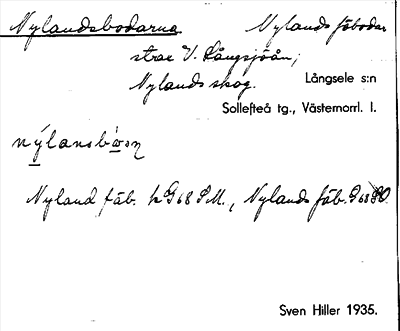 Nylandsbodarna Nylands fäbodar
strax V. Långsjöån;
Nylands skog. Långsele s:n
Sollefteå tg., Västernorrl. l.
Nyland fäb. G 68 S.M., Nylands fäb. G 68 SO.
Sven Hiller 1935.